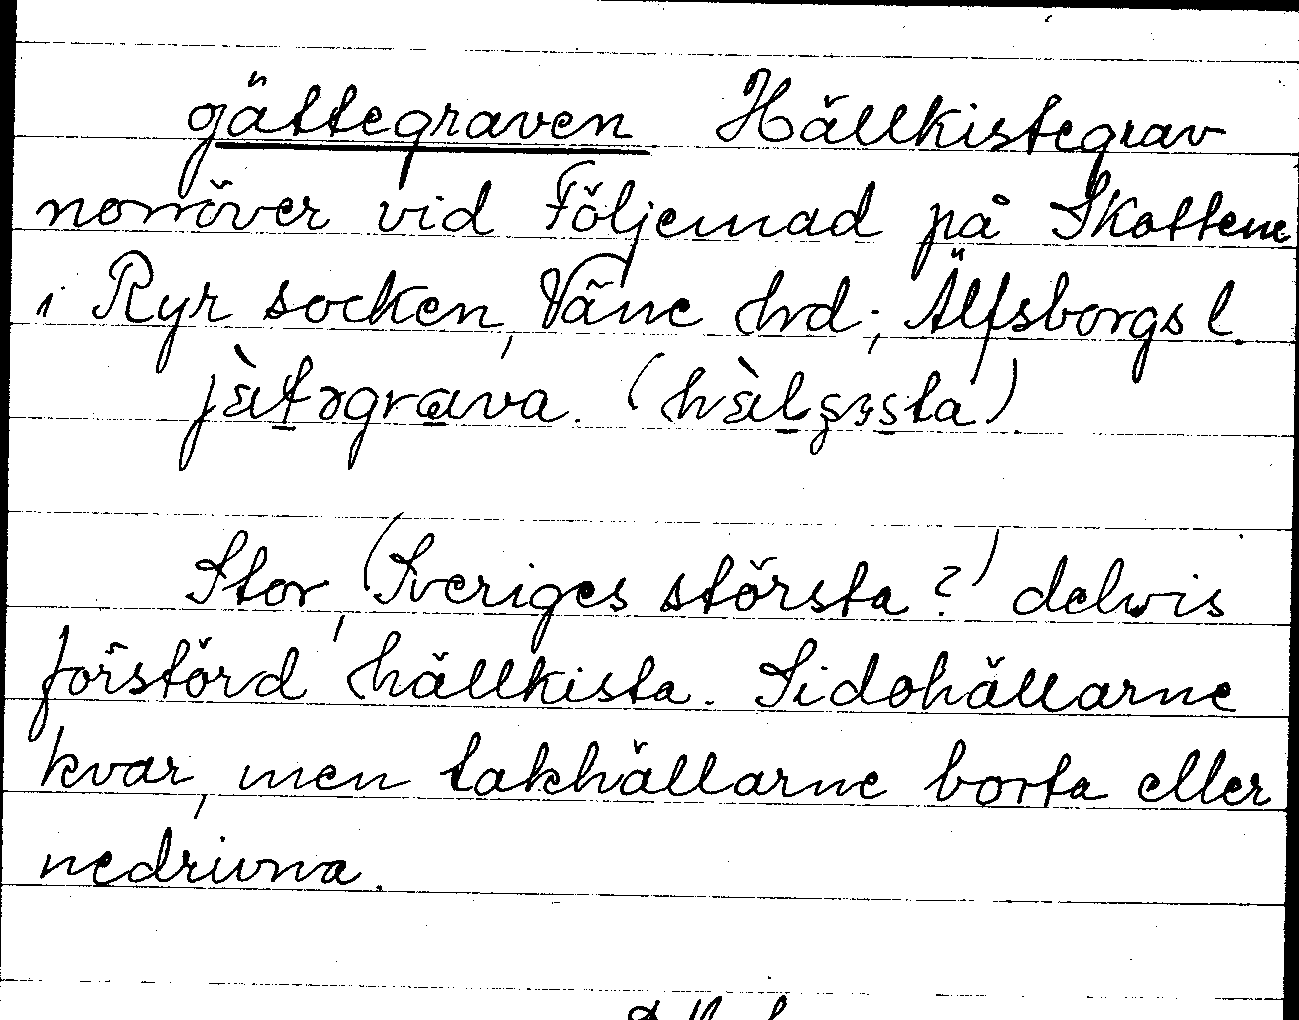 gättegraven Hällkistegrav
norröver vid Följemad på Skottene
i Ryr socken, Väne hrd; Älfsborgs l.
jàt̲əgra̲va. (hàl̲şıs̲ta)
Stor, (Sveriges största?) delvis
förstörd hällkista. Sidohällarne
kvar, men takhällarne borta eller
nedrivna.